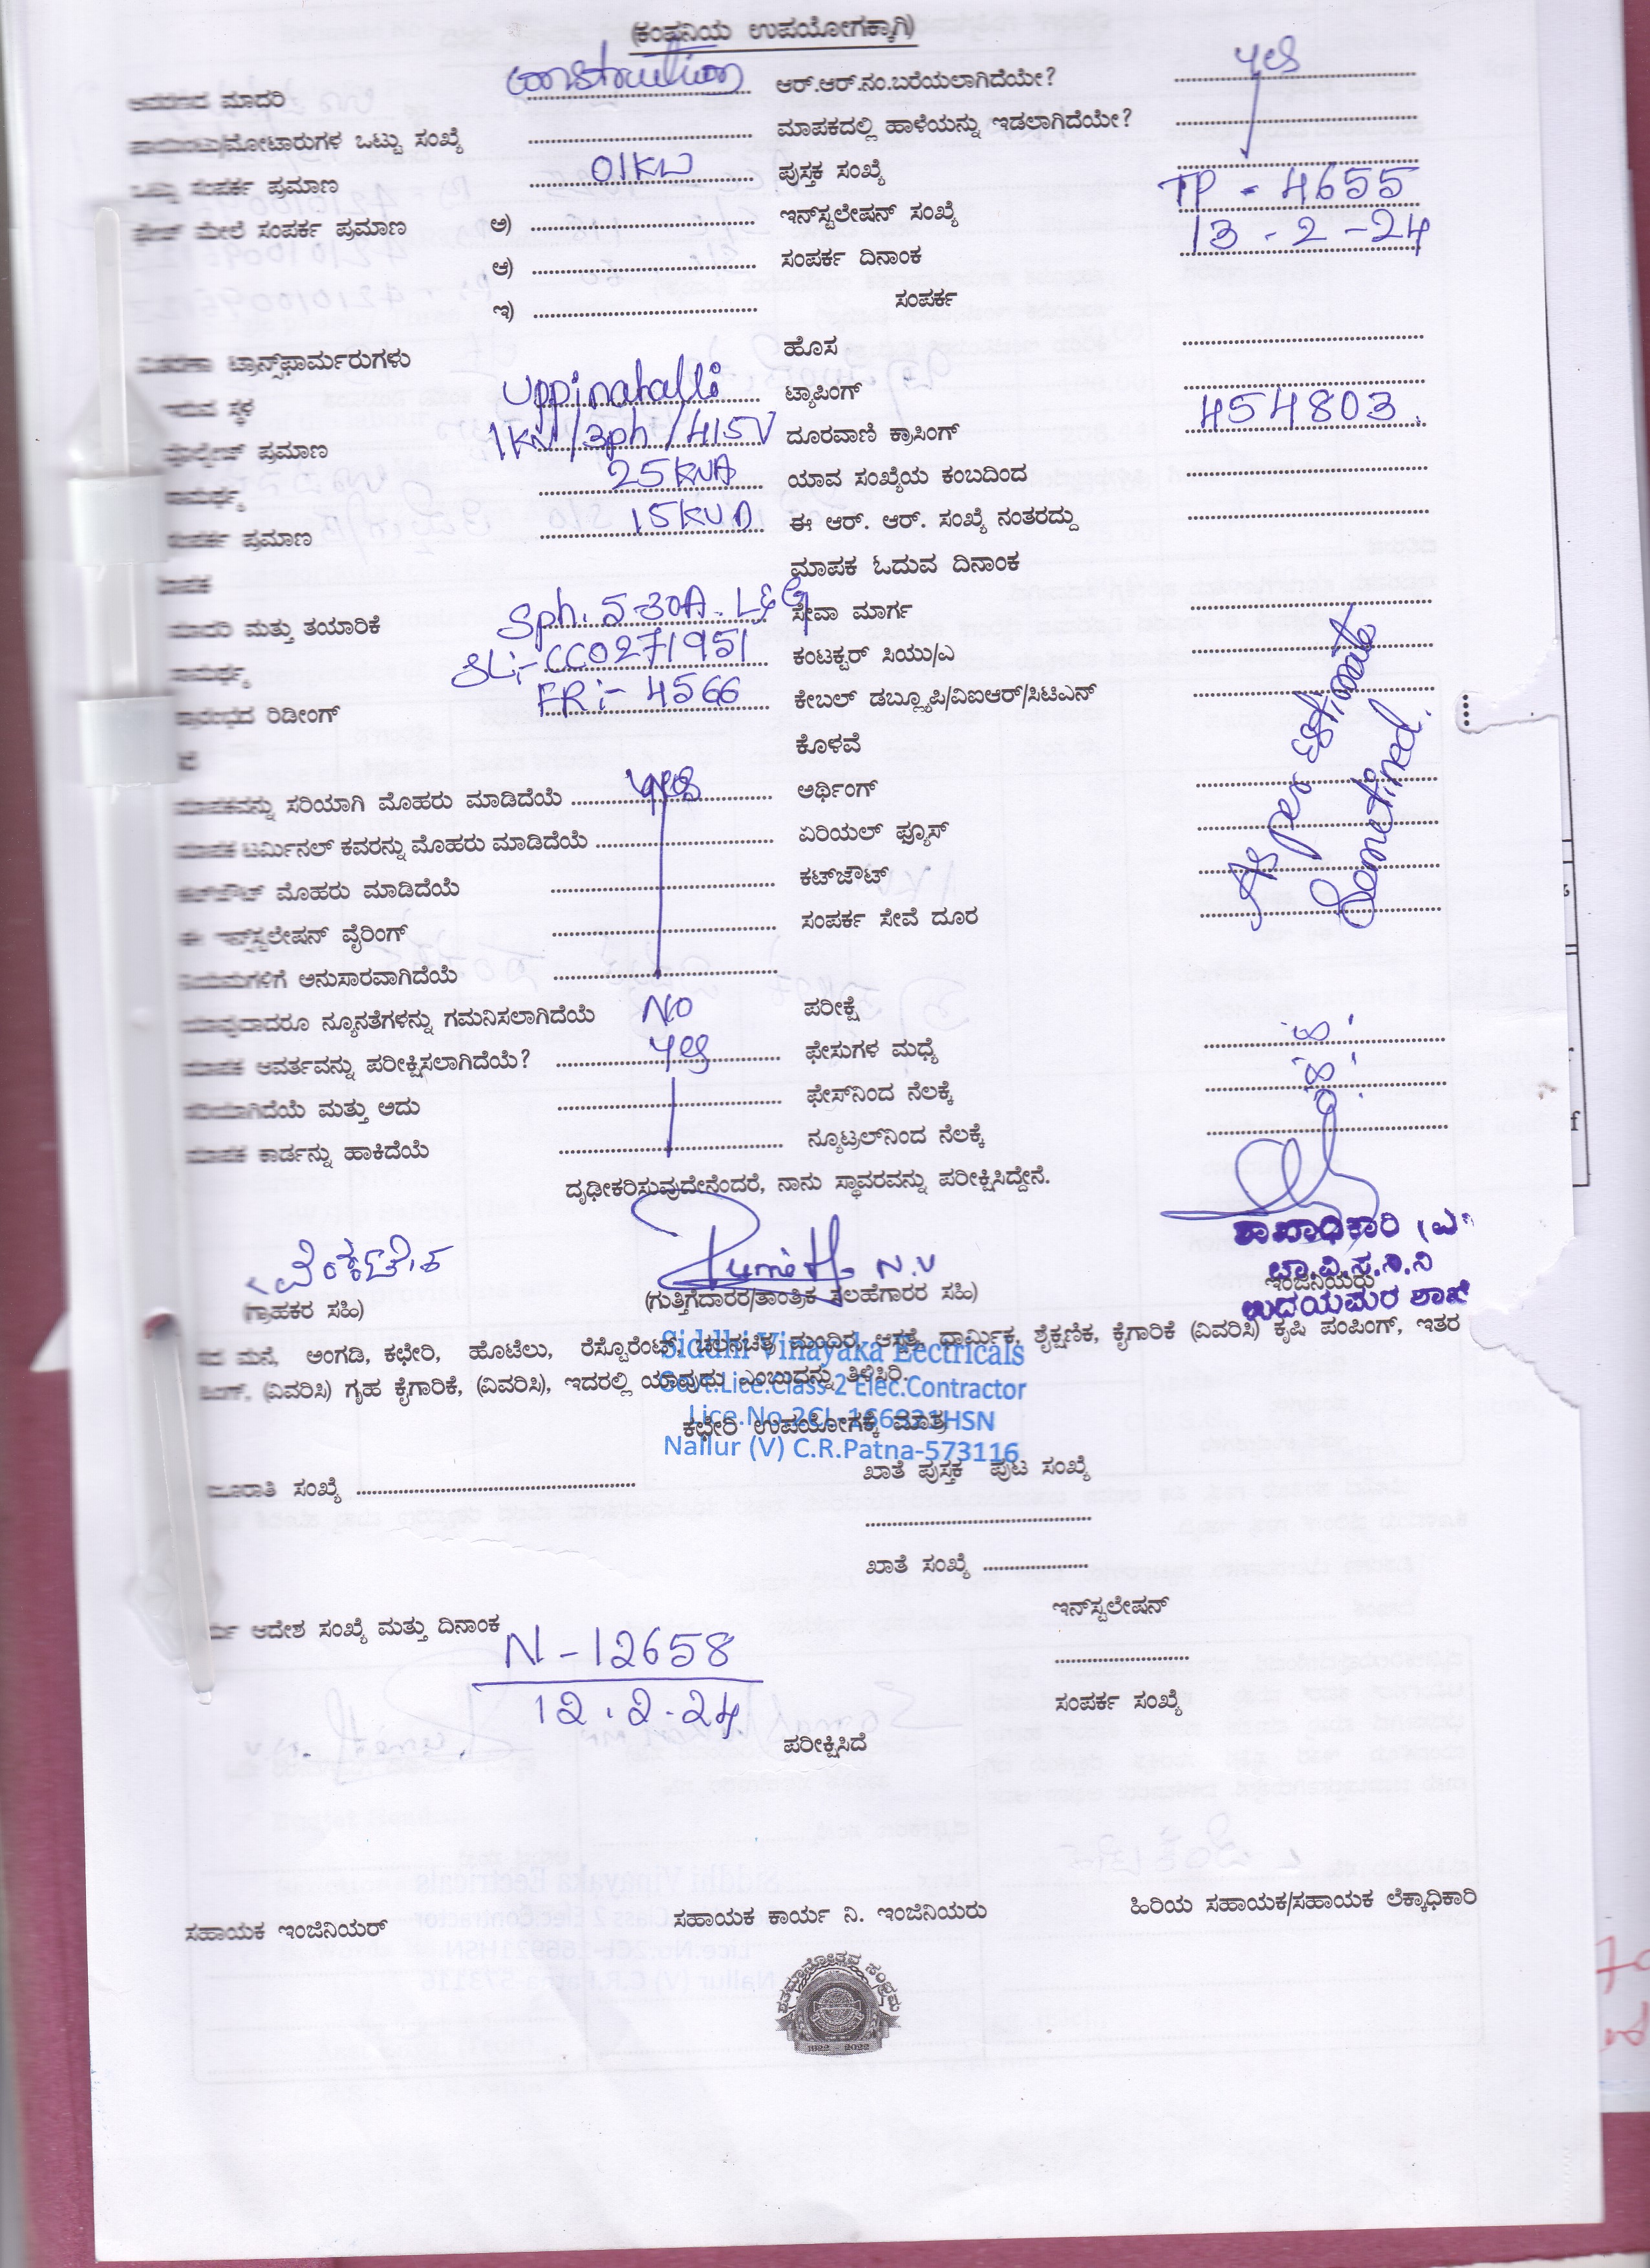 (ಕಂಪನಿಯ ಉಪಯೋಗಕ್ಕಾಗಿ)
ಮಾದರಿ construction ಆರ್.ಆರ್.ನಂ.ಬರೆಯಲಾಗಿದೆಯೇ? yes
ಪಾಯಿಂಟು/ಮೋಟಾರುಗಳ ಒಟ್ಟು ಸಂಖ್ಯೆ ಮಾಪಕದಲ್ಲಿ ಹಾಳೆಯನ್ನು ಇಡಲಾಗಿದೆಯೇ?
ಒಟ್ಟು ಸಂಪರ್ಕ ಪ್ರಮಾಣ 01KW ಪುಸ್ತಕ ಸಂಖ್ಯೆ
ಮೇಲೆ ಸಂಪರ್ಕ ಪ್ರಮಾಣ ಅ) ಇನ್‌ಸ್ಟಲೇಷನ್ ಸಂಖ್ಯೆ TP - 4655
ಆ) ಸಂಪರ್ಕ ದಿನಾಂಕ 13 - 2 - 24
ಇ) ಸಂಪರ್ಕ
ಟ್ರಾನ್ಸ್‌ಫಾರ್ಮರುಗಳು ಹೊಸ
ಇರುವ ಸ್ಥಳ Uppinahalli ಟ್ಯಾಪಿಂಗ್
ಪ್ರಮಾಣ 1KV/3ph/415V ದೂರವಾಣಿ ಕ್ರಾಸಿಂಗ್ 454803.
ಸಾಮರ್ಥ್ಯ 25KVA ಯಾವ ಸಂಖ್ಯೆಯ ಕಂಬದಿಂದ
ಸಂಪರ್ಕ ಪ್ರಮಾಣ 15KVA ಈ ಆರ್. ಆರ್. ಸಂಖ್ಯೆ ನಂತರದ್ದು
ಮಾಪಕ ಮಾಪಕ ಓದುವ ದಿನಾಂಕ
ಮಾದರಿ ಮತ್ತು ತಯಾರಿಕೆ Sph. 5-30A. L&G ಸೇವಾ ಮಾರ್ಗ
ಸಾಮರ್ಥ್ಯ SL:- CC0271951 ಕಂಟಕ್ಟರ್ ಸಿಯು/ಎ
ಪ್ರಾರಂಭದ ರಿಡೀಂಗ್ FR:- 4566 ಕೇಬಲ್ ಡಬ್ಲ್ಯೂಪಿ/ವಿಐಆರ್/ಸಿಟಿಎನ್
ಕೊಳವೆ
As per Estimate
Sanctined.
ಮಾಪಕವನ್ನು ಸರಿಯಾಗಿ ಮೊಹರು ಮಾಡಿದೆಯೆ yes ಅರ್ಥಿಂಗ್
ಮಾಪಕ ಟರ್ಮಿನಲ್ ಕವರನ್ನು ಮೊಹರು ಮಾಡಿದೆಯೆ ಏರಿಯಲ್ ಫ್ಯೂಸ್
ಕಟ್‌ಔಟ್ ಮೊಹರು ಮಾಡಿದೆಯೆ ಕಟ್‌ಔಟ್
ಈ ಇನ್‌ಸ್ಟಲೇಷನ್ ವೈರಿಂಗ್ ಸಂಪರ್ಕ ಸೇವೆ ದೂರ
ನಿಯಮಗಳಿಗೆ ಅನುಸಾರವಾಗಿದೆಯೆ
ಯಾವುದಾದರೂ ನ್ಯೂನತೆಗಳನ್ನು ಗಮನಿಸಲಾಗಿದೆಯೆ NO ಪರೀಕ್ಷೆ
ಮಾಪಕ ಆವರ್ತವನ್ನು ಪರೀಕ್ಷಿಸಲಾಗಿದೆಯೆ? yes ಫೇಸುಗಳ ಮಧ್ಯೆ
ಸರಿಯಾಗಿದೆಯೆ ಮತ್ತು ಅದು ಫೇಸ್‌ನಿಂದ ನೆಲಕ್ಕೆ
ಮಾಪಕ ಕಾರ್ಡನ್ನು ಹಾಕಿದೆಯೆ ನ್ಯೂಟ್ರಲ್‌ನಿಂದ ನೆಲಕ್ಕೆ
ದೃಢೀಕರಿಸುವುದೇನೆಂದರೆ, ನಾನು ಸ್ಥಾವರವನ್ನು ಪರೀಕ್ಷಿಸಿದ್ದೇನೆ.
ವೆಂಕಟೇಶ Punith N.V ಶಾಖಾಧಿಕಾರಿ (ವಿ
ಚಾ.ವಿ.ಸ.ನಿ.ನಿ
(ಗ್ರಾಹಕರ ಸಹಿ) (ಗುತ್ತಿಗೆದಾರರ/ತಾಂತ್ರಿಕ ಸಲಹೆಗಾರರ ಸಹಿ) ಇಂಜಿನಿಯರು
ಉದಯಪುರ ಶಾಖೆ
ಮನೆ, ಅಂಗಡಿ, ಕಛೇರಿ, ಹೊಟೆಲು, ರೆಸ್ಟೊರೆಂಟ್, ಚಲನಚಿತ್ರ ಮಂದಿರ, ಆಸ್ಪತ್ರೆ, ಧಾರ್ಮಿಕ, ಶೈಕ್ಷಣಿಕ, ಕೈಗಾರಿಕೆ (ವಿವರಿಸಿ) ಕೃಷಿ ಪಂಪಿಂಗ್, ಇತರ
(ವಿವರಿಸಿ) ಗೃಹ ಕೈಗಾರಿಕೆ, (ವಿವರಿಸಿ), ಇದರಲ್ಲಿ ಯಾವುದು ಎಂಬುದನ್ನು ತಿಳಿಸಿರಿ.
Siddhi Vinayaka Eectricals
Govt.Lice.Class 2 Elec.Contractor
Lice.No.2CL-166921HSN
Nallur (V) C.R.Patna-573116
ಕಛೇರಿ ಉಪಯೋಗಕ್ಕೆ ಮಾತ್ರ
ಸಂಖ್ಯೆ ಖಾತೆ ಪುಸ್ತಕ ಪುಟ ಸಂಖ್ಯೆ
ಖಾತೆ ಸಂಖ್ಯೆ
ಇನ್‌ಸ್ಟಲೇಷನ್
ಆದೇಶ ಸಂಖ್ಯೆ ಮತ್ತು ದಿನಾಂಕ N-12658
12.2.24
ಸಂಪರ್ಕ ಸಂಖ್ಯೆ
ಪರೀಕ್ಷಿಸಿದೆ
ಸಹಾಯಕ ಇಂಜಿನಿಯರ್ ಸಹಾಯಕ ಕಾರ್ಯ ನಿ. ಇಂಜಿನಿಯರು ಹಿರಿಯ ಸಹಾಯಕ/ಸಹಾಯಕ ಲೆಕ್ಕಾಧಿಕಾರಿ
ಶತಮಾನೋತ್ಸವ ಸಂಭ್ರಮ
1922 - 2022